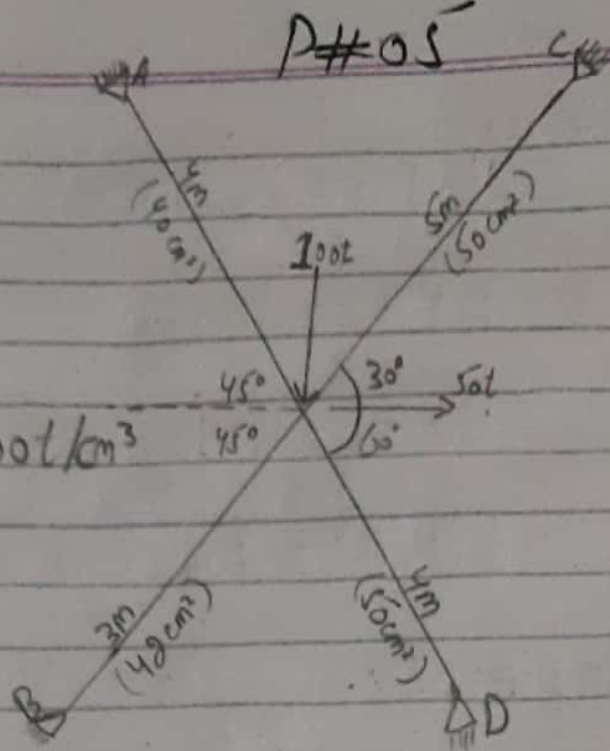 P#05
A
C
4m
(40cm²)
5m
(50cm²)
100t
45°
30°
50t
45°
60°
00t/cm³
3m
(48cm²)
4m
(50cm²)
B
D